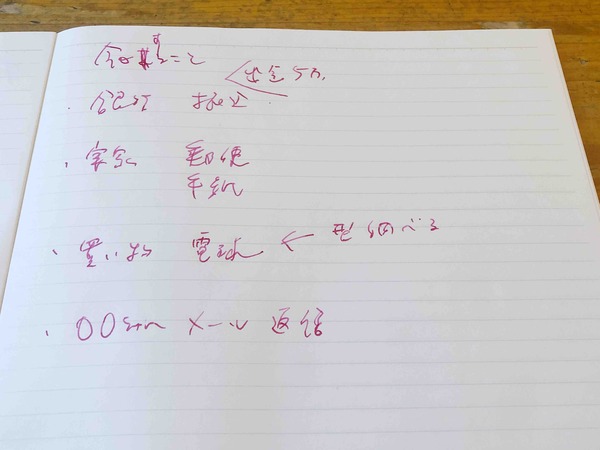 今日すること
・銀行 振込 < 出金 5万.
・実家 郵便
手紙
・買い物 電球 ← 型調べる
・〇〇さんメール返信